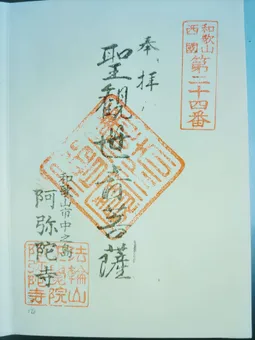 和歌山
西國
第二十四番
奉拝
聖観世音菩薩
和歌山市中之島
阿弥陀寺
法輪山
阿弥陀寺